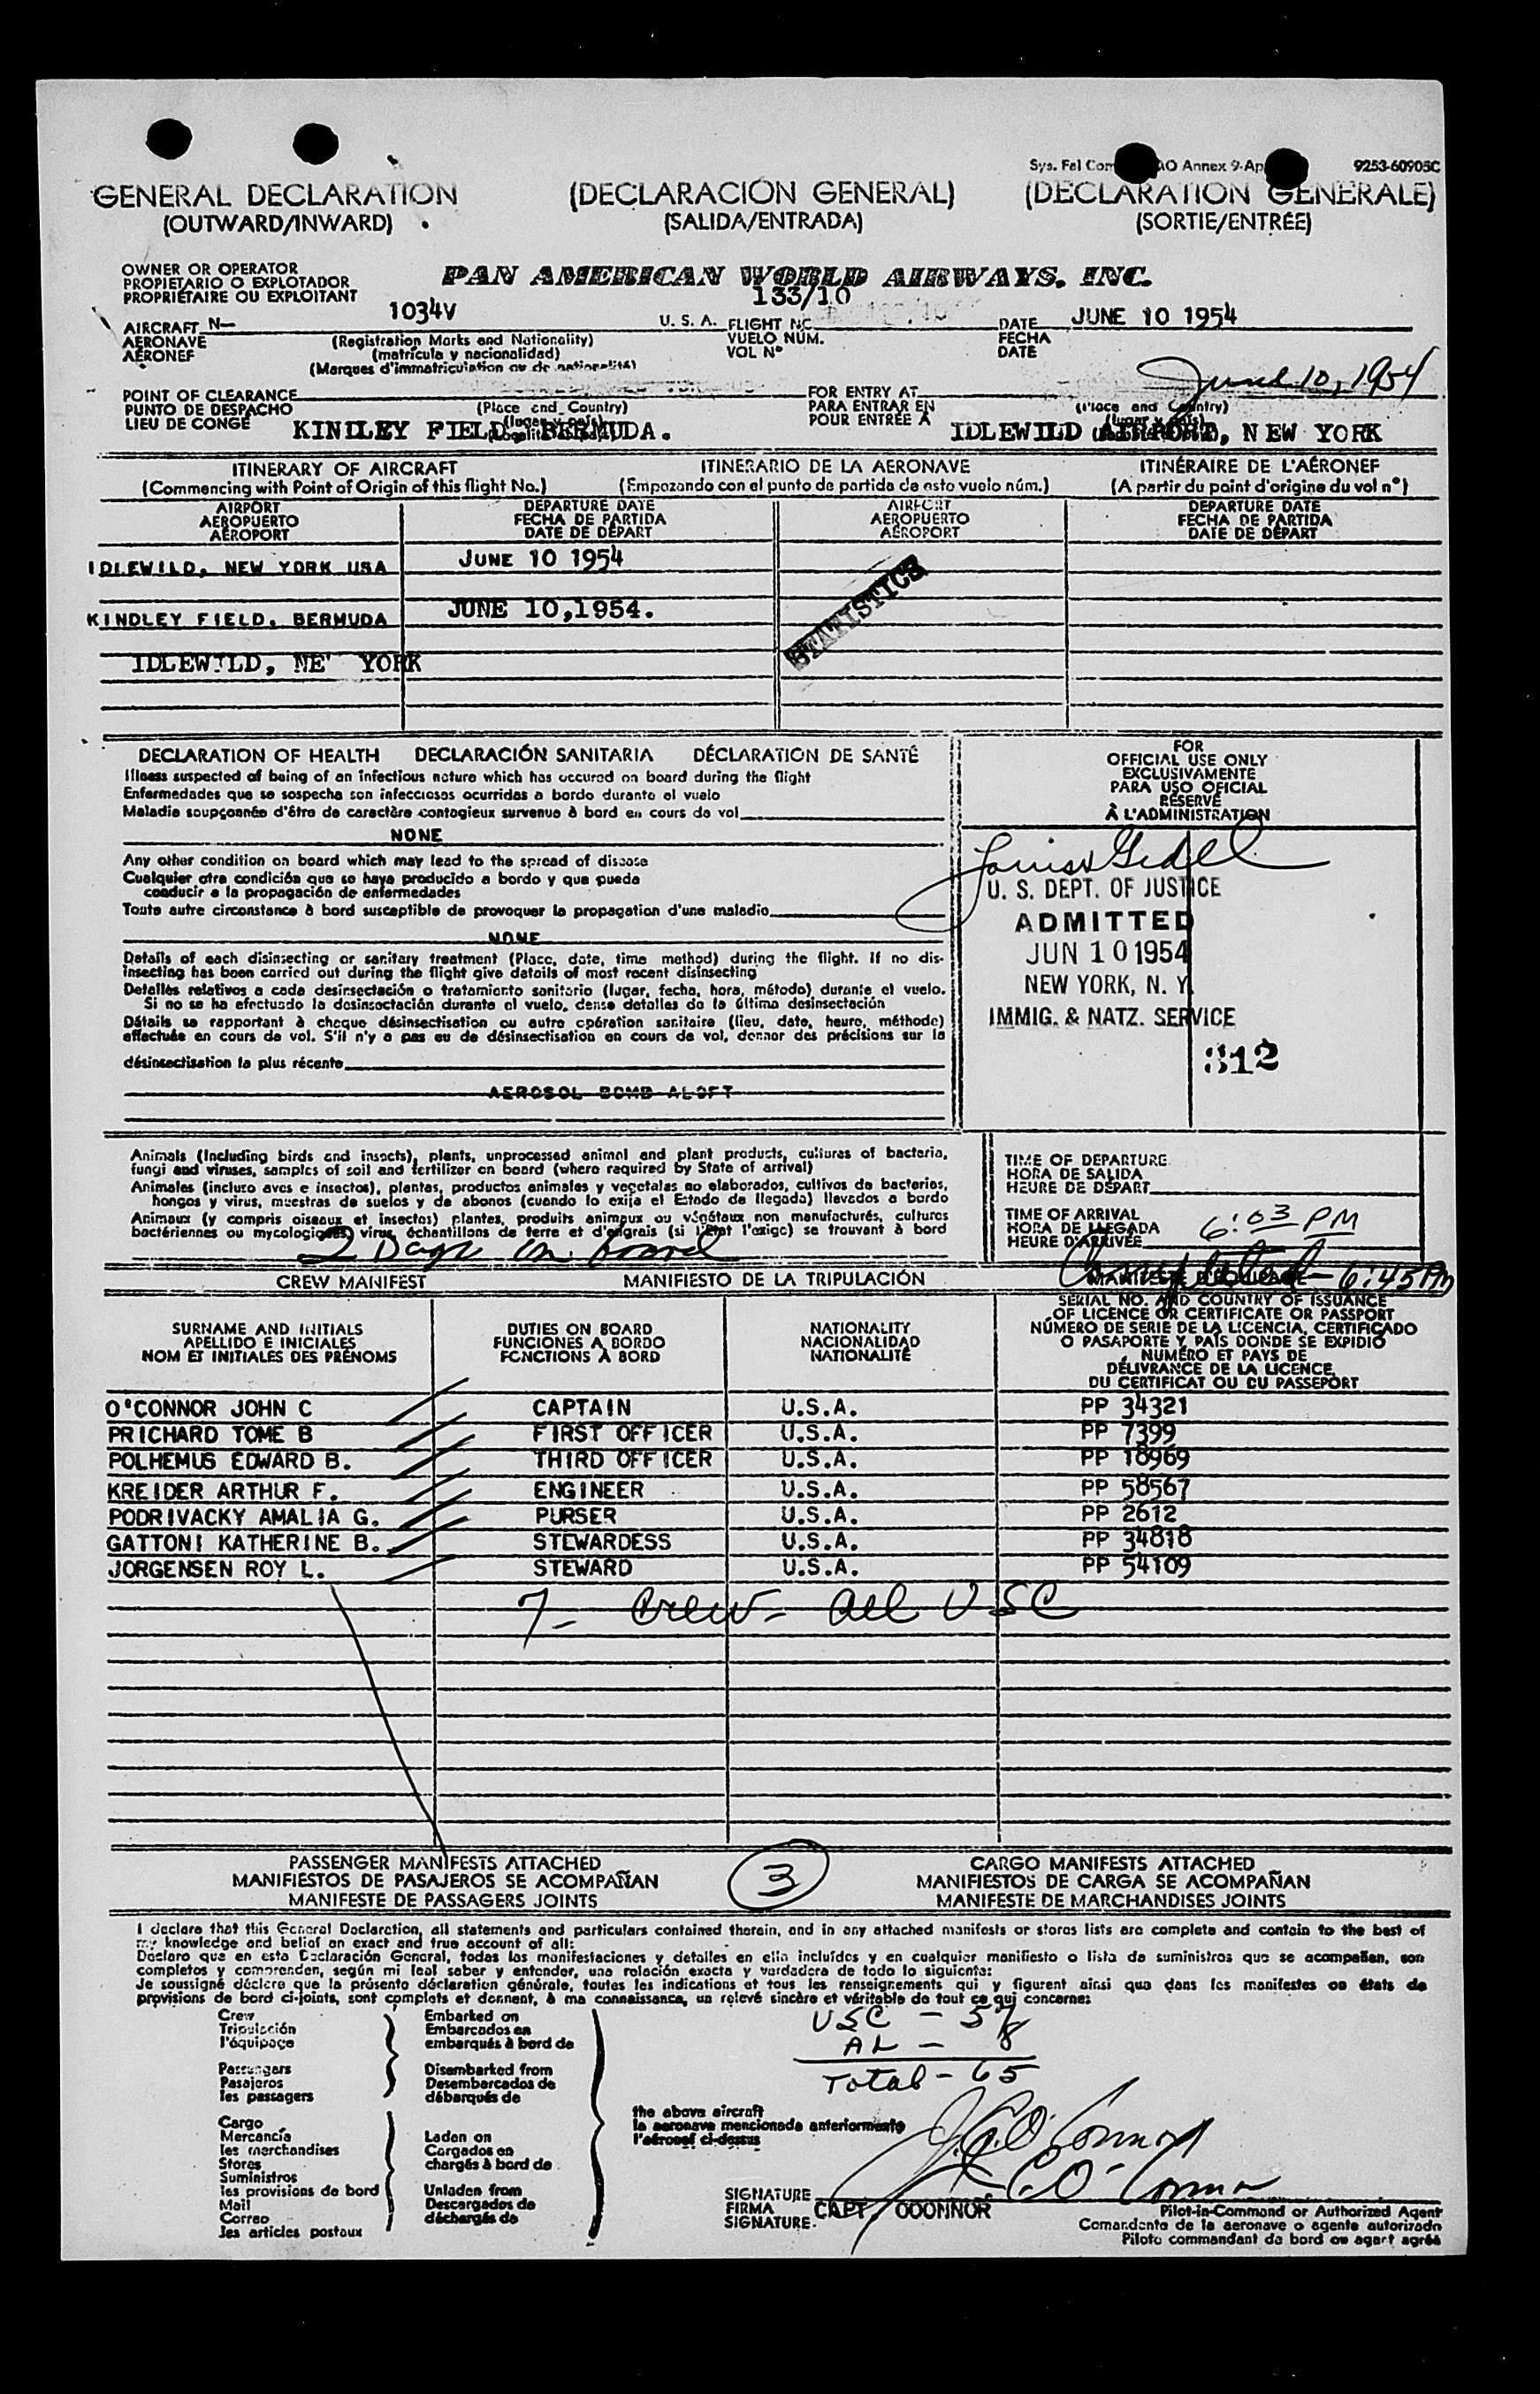 Sys. Fal Com AO Annex 9-Ap 9253-60905C
GENERAL DECLARATION (DECLARACIÓN GENERAL) (DECLARATION GENERALE)
(OUTWARD/INWARD) (SALIDA/ENTRADA) (SORTIE/ENTRÉE)
OWNER OR OPERATOR
PROPIETARIO O EXPLOTADOR
PROPRIÉTAIRE OU EXPLOITANT
PAN AMERICAN WORLD AIRWAYS, INC.
133/10
AIRCRAFT N- 1034V U. S. A. FLIGHT NO. DATE JUNE 10 1954
AERONAVE (Registration Marks and Nationality) VUELO NÚM. FECHA
AÉRONEF (matrícula y nacionalidad) VOL Nº DATE
(Marques d'immatriculation ou de nationalité)
June 10, 1954
POINT OF CLEARANCE FOR ENTRY AT
PUNTO DE DESPACHO (Place and Country) PARA ENTRAR EN (Place and Country)
LIEU DE CONGÉ POUR ENTRÉE À
KINDLEY FIELD, BERMUDA. IDLEWILD AIRPORT, NEW YORK
ITINERARY OF AIRCRAFT ITINERARIO DE LA AERONAVE ITINÉRAIRE DE L'AÉRONEF
(Commencing with Point of Origin of this flight No.) (Empezando con el punto de partida de esto vuelo núm.) (A partir du point d'origine du vol nº)
AIRPORT DEPARTURE DATE AIRPORT DEPARTURE DATE
AEROPUERTO FECHA DE PARTIDA AEROPUERTO FECHA DE PARTIDA
AÉROPORT DATE DE DÉPART AÉROPORT DATE DE DÉPART
IDLEWILD, NEW YORK USA JUNE 10 1954
STATISTICS
KINDLEY FIELD, BERMUDA JUNE 10,1954.
IDLEWILD, NE YORK
DECLARATION OF HEALTH DECLARACIÓN SANITARIA DÉCLARATION DE SANTÉ
Illness suspected of being of an infectious nature which has occured on board during the flight
Enfermedades que se sospecha son infecciosas ocurridas a bordo durante el vuelo
Maladie soupçonnée d'être de caractère contagieux survenue à bord en cours de vol
NONE
Any other condition on board which may lead to the spread of disease
Cualquier otra condición que se haya producido a bordo y que pueda
conducir a la propagación de enfermedades
Toute autre circonstance à bord susceptible de provoquer la propagation d'une maladie
NONE
Details of each disinsecting or sanitary treatment (Place, date, time method) during the flight. If no dis-
insecting has been carried out during the flight give details of most recent disinsecting
Detalles relativos a cada desinsectación o tratamiento sanitario (lugar, fecha, hora, método) durante el vuelo.
Si no se ha efectuado la desinsectación durante el vuelo, dense detalles de la última desinsectación
Détails se rapportant à chaque désinsectisation ou autre opération sanitaire (lieu, date, heure, méthode)
effectuée en cours de vol. S'il n'y a pas eu de désinsectisation en cours de vol, donner des précisions sur la
désinsectisation la plus récente
AEROSOL BOMB ALOFT
FOR
OFFICIAL USE ONLY
EXCLUSIVAMENTE
PARA USO OFICIAL
RÉSERVÉ
À L'ADMINISTRATION
U. S. DEPT. OF JUSTICE
ADMITTED
JUN 10 1954
NEW YORK, N. Y.
IMMIG. & NATZ. SERVICE
312
Animals (Including birds and insects), plants, unprocessed animal and plant products, cultures of bacteria,
fungi and viruses, samples of soil and fertilizer on board (where required by State of arrival)
Animales (incluro aves e insectos), plantas, productos animales y vegetales no elaborados, cultivos de bacterias,
hongos y virus, muestras de suelos y de abonos (cuando lo exija el Estado de llegada) llevados a bordo
Animaux (y compris oiseaux et insectes) plantes, produits animaux ou végétaux non manufacturés, cultures
bactériennes ou mycologiques, virus, échantillons de terre et d'engrais (si l'État l'exige) se trouvant à bord
2 Dogs on board
TIME OF DEPARTURE
HORA DE SALIDA
HEURE DE DÉPART
TIME OF ARRIVAL
HORA DE LLEGADA
HEURE D'ARRIVÉE
6:03 PM
Completed - 6:45 PM
CREW MANIFEST MANIFIESTO DE LA TRIPULACIÓN MANIFESTE D'EQUIPAGE
SURNAME AND INITIALS DUTIES ON BOARD NATIONALITY SERIAL NO. AND COUNTRY OF ISSUANCE
APELLIDO E INICIALES FUNCIONES A BORDO NACIONALIDAD OF LICENCE OR CERTIFICATE OR PASSPORT
NOM ET INITIALES DES PRÉNOMS FONCTIONS À BORD NATIONALITÉ NÚMERO DE SERIE DE LA LICENCIA, CERTIFICADO
O PASAPORTE Y PAÍS DONDE SE EXPIDIÓ
NUMÉRO ET PAYS DE
DÉLIVRANCE DE LA LICENCE,
DU CERTIFICAT OU DU PASSEPORT
O'CONNOR JOHN C CAPTAIN U.S.A. PP 34321
PRICHARD TOME B FIRST OFFICER U.S.A. PP 7399
POLHEMUS EDWARD B. THIRD OFFICER U.S.A. PP 18969
KREIDER ARTHUR F. ENGINEER U.S.A. PP 58567
PODRIVACKY AMALIA G. PURSER U.S.A. PP 2612
GATTONI KATHERINE B. STEWARDESS U.S.A. PP 34818
JORGENSEN ROY L. STEWARD U.S.A. PP 54109
7- Crew- all USC
PASSENGER MANIFESTS ATTACHED CARGO MANIFESTS ATTACHED
MANIFIESTOS DE PASAJEROS SE ACOMPAÑAN 3 MANIFIESTOS DE CARGA SE ACOMPAÑAN
MANIFESTE DE PASSAGERS JOINTS MANIFESTE DE MARCHANDISES JOINTS
I declare that this General Declaration, all statements and particulars contained therein, and in any attached manifests or stores lists are complete and contain to the best of
my knowledge and belief an exact and true account of all:
Declaro que en esta Declaración General, todas las manifestaciones y detalles en ella incluídos y en cualquier manifiesto o lista de suministros que se acompañan, son
completos y comprenden, según mi leal saber y entender, una relación exacta y verdadera de todo lo siguiente:
Je soussigné déclare que la présente déclaration générale, toutes les indications et tous les renseignements qui y figurent ainsi que dans les manifestes ou états de
provisions de bord ci-joints, sont complets et donnent, à ma connaissance, un relevé sincère et véritable de tout ce qui concerne:
Crew Embarked on
Tripulación Embarcados en
l'équipage embarqués à bord de
Passengers Disembarked from
Pasajeros Desembarcados de
les passagers débarqués de
Cargo
Mercancía Laden on
les marchandises Cargados en
Stores chargés à bord de
Suministros
les provisions de bord Unladen from
Mail Descargados de
Correo déchargés de
les articles postaux
USC - 57
AL - 8
Total - 65
the above aircraft
la aeronave mencionada anteriormente
l'aéronef ci-dessus
J. C. O'Connor
J. C. O'Connor
SIGNATURE
FIRMA CAPT. OCONNOR
SIGNATURE
Pilot-in-Command or Authorized Agent
Comandante de la aeronave o agente autorizado
Pilote commandant de bord ou agent agréé